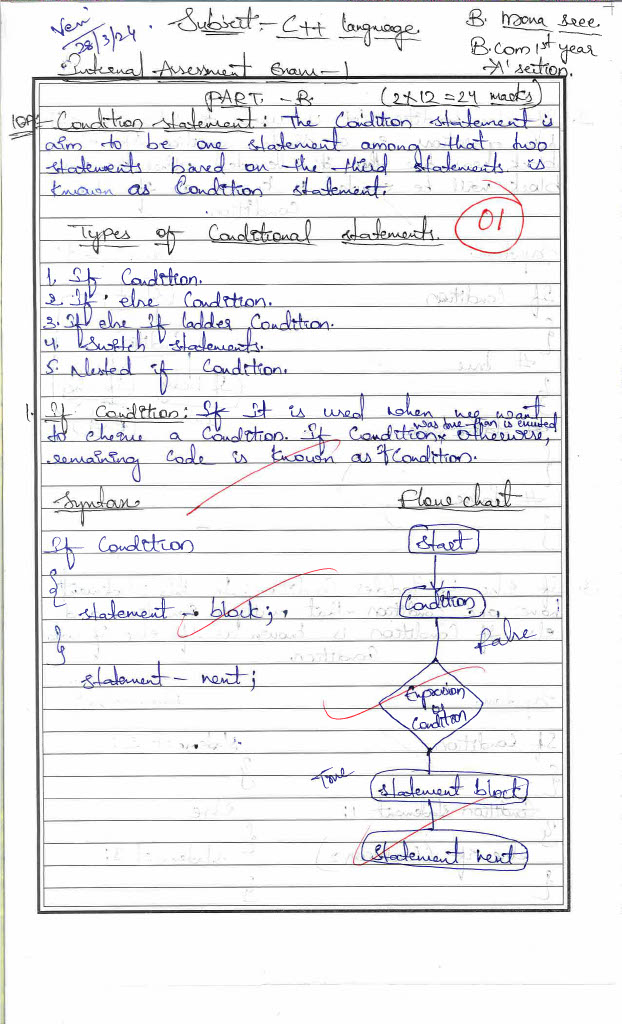 28/3/24
Subject:- C++ language.
B. Mona sree.
B.Com 1st year
'A' section.
Internal Assessment Exam-1
PART - B. (2x12 = 24 marks)
Condition statement: The Condition statement is
aim to be one statement among that two
statements based on the third statements is
known as Condition statement.
01
Types of Conditional statements.
1. If Condition.
2. If else Condition.
3. If else If ladder Condition.
4. Switch statements.
5. Nested if Condition.
1. If Condition: If It is used when we want
to a Condition. If Condition was true Otherwise,
remaining Code is known as If Condition.
Syntax
Flow chart
If Condition
{
statement - block;
}
statement - next;
Start
Condition
false
Expression
or
Condition
True
statement block
statement next